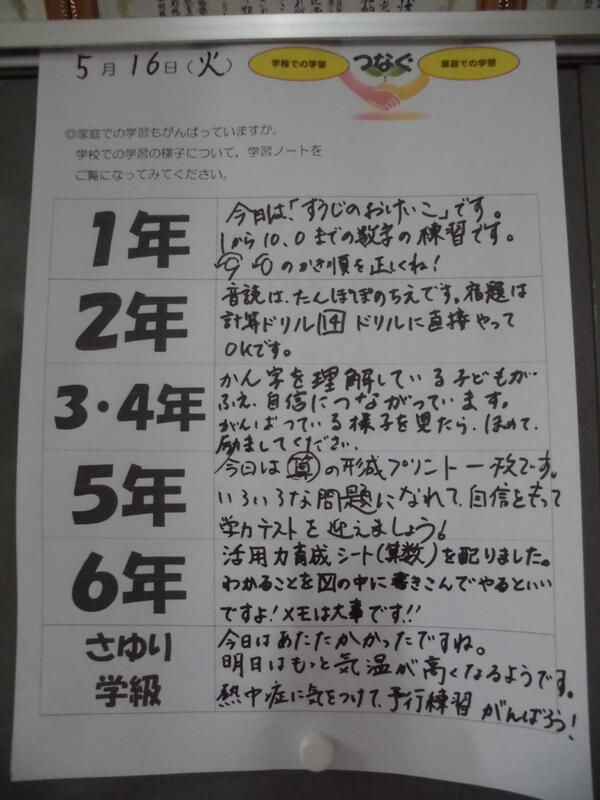 5月16日(火)
学校での学習 つなぐ 家庭での学習
◎家庭での学習もがんばっていますか。
学校での学習の様子について、学習ノートを
ご覧になってみてください。
1年
今日は「すうじのおけいこ」です。
1から10、0までの数字の練習です。
9 0のかき順を正しくね!
2年
音読は、たんぽぽのちえです。宿題は
計算ドリル14 ドリルに直接やって
OKです。
3・4年
かん字を理解している子どもが
ふえ、自信につながっています。
がんばっている様子を見たら、ほめて、
励ましてください。
5年
今日は算の形成プリント一枚です。
いろいろな問題になれて、自信をもって
学力テストを迎えましょう!
6年
活用力育成シート(算数)を配りました。
わかることを図の中に書きこんでやるといい
ですよ!メモは大事です!!
さゆり
学級
今日はあたたかかったですね。
明日はもっと気温が高くなるようです。
熱中症に気をつけて、予行練習がんばろう!